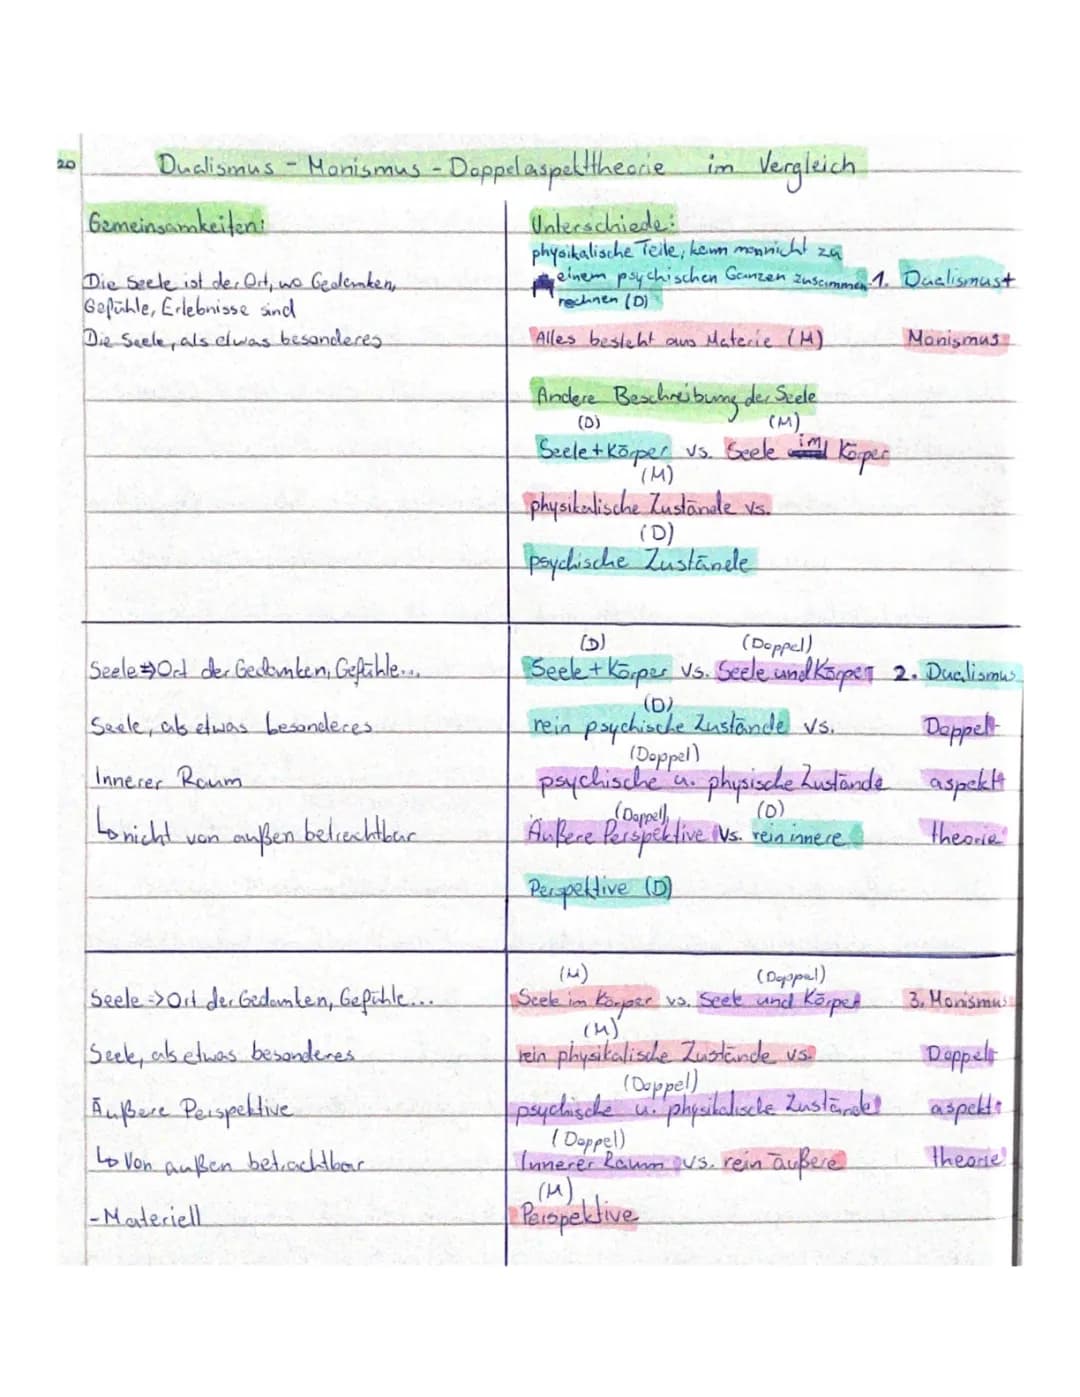 20
Dualismus - Monismus - Doppelaspekttheorie im Vergleich
Gemeinsamkeiten:
Die Seele ist der Ort, wo Gedanken,
Gefühle, Erlebnisse sind
Die Seele, als etwas besonderes
Unterschiede:
physikalische Teile, kann man nicht zu
einem psychischen Ganzen zusammen
rechnen (D)
1. Dualismus +
Alles besteht aus Materie (M)
Monismus
Andere Beschreibung der Seele
(D) (M)
Seele + Körper vs. Seele im Körper
(M)
physikalische Zustände vs.
(D)
psychische Zustände
Seele => Ort der Gedanken, Gefühle...
Seele, als etwas besonderes
Innerer Raum
↳ nicht von außen betrachtbar
(D) (Doppel)
Seele + Körper vs. Seele und Körper
2. Dualismus
(D)
rein psychische Zustände vs.
Doppel-
(Doppel)
psychische u. physische Zustände
aspekt-
(Doppel) (D)
Äußere Perspektive vs. rein innere
theorie
Perspektive (D)
Seele -> Ort der Gedanken, Gefühle...
Seele, als etwas besonderes
Äußere Perspektive
↳ Von außen betrachtbar
- Materiell
(M) (Doppel)
Seele im Körper vs. Seele und Körper
3. Monismus
(M)
rein physikalische Zustände vs.
Doppel-
(Doppel)
psychische u. physikalische Zustände
aspekt-
(Doppel)
Innerer Raum vs. rein äußere
theorie
(M)
Perspektive